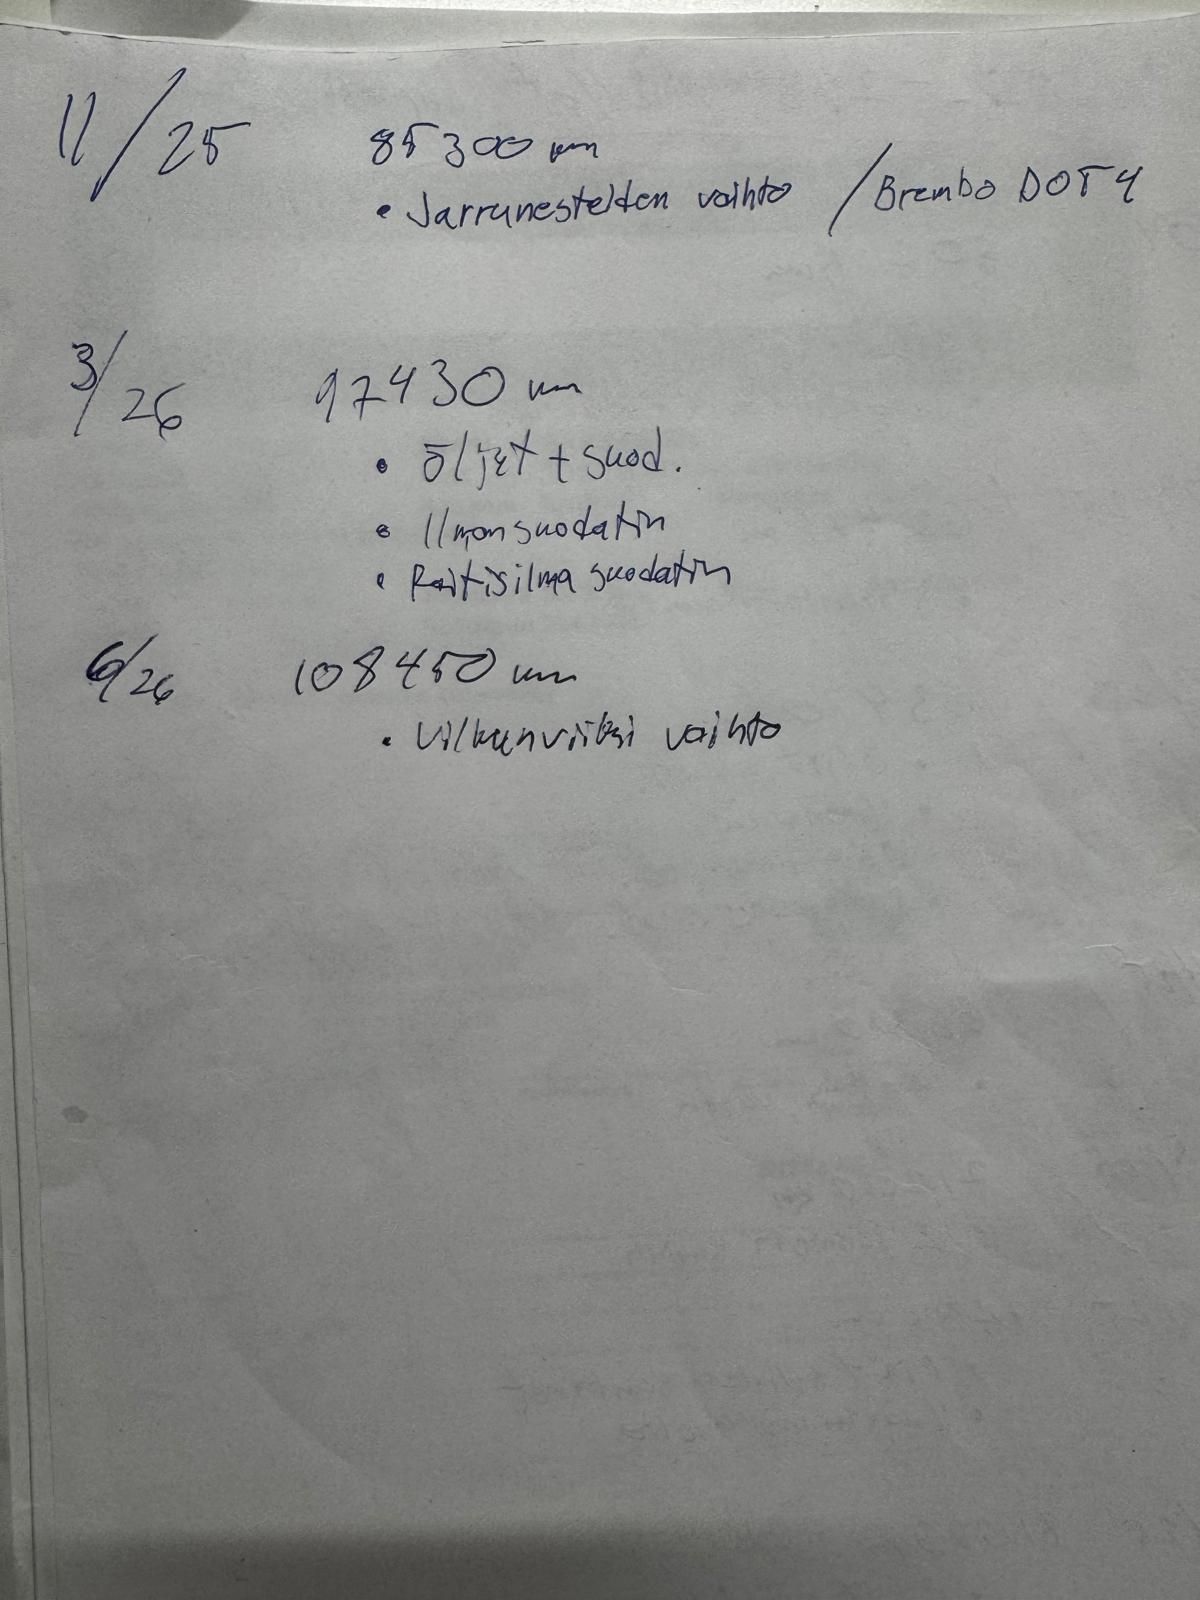 11/25 85300 km
• Jarrunesteiden vaihto / Brembo DOT4
3/26 97430 km
• Öljyt + suod.
• Ilmansuodatin
• Raitisilmasuodatin
6/26 108450 km
• Vilkunviiksi vaihto